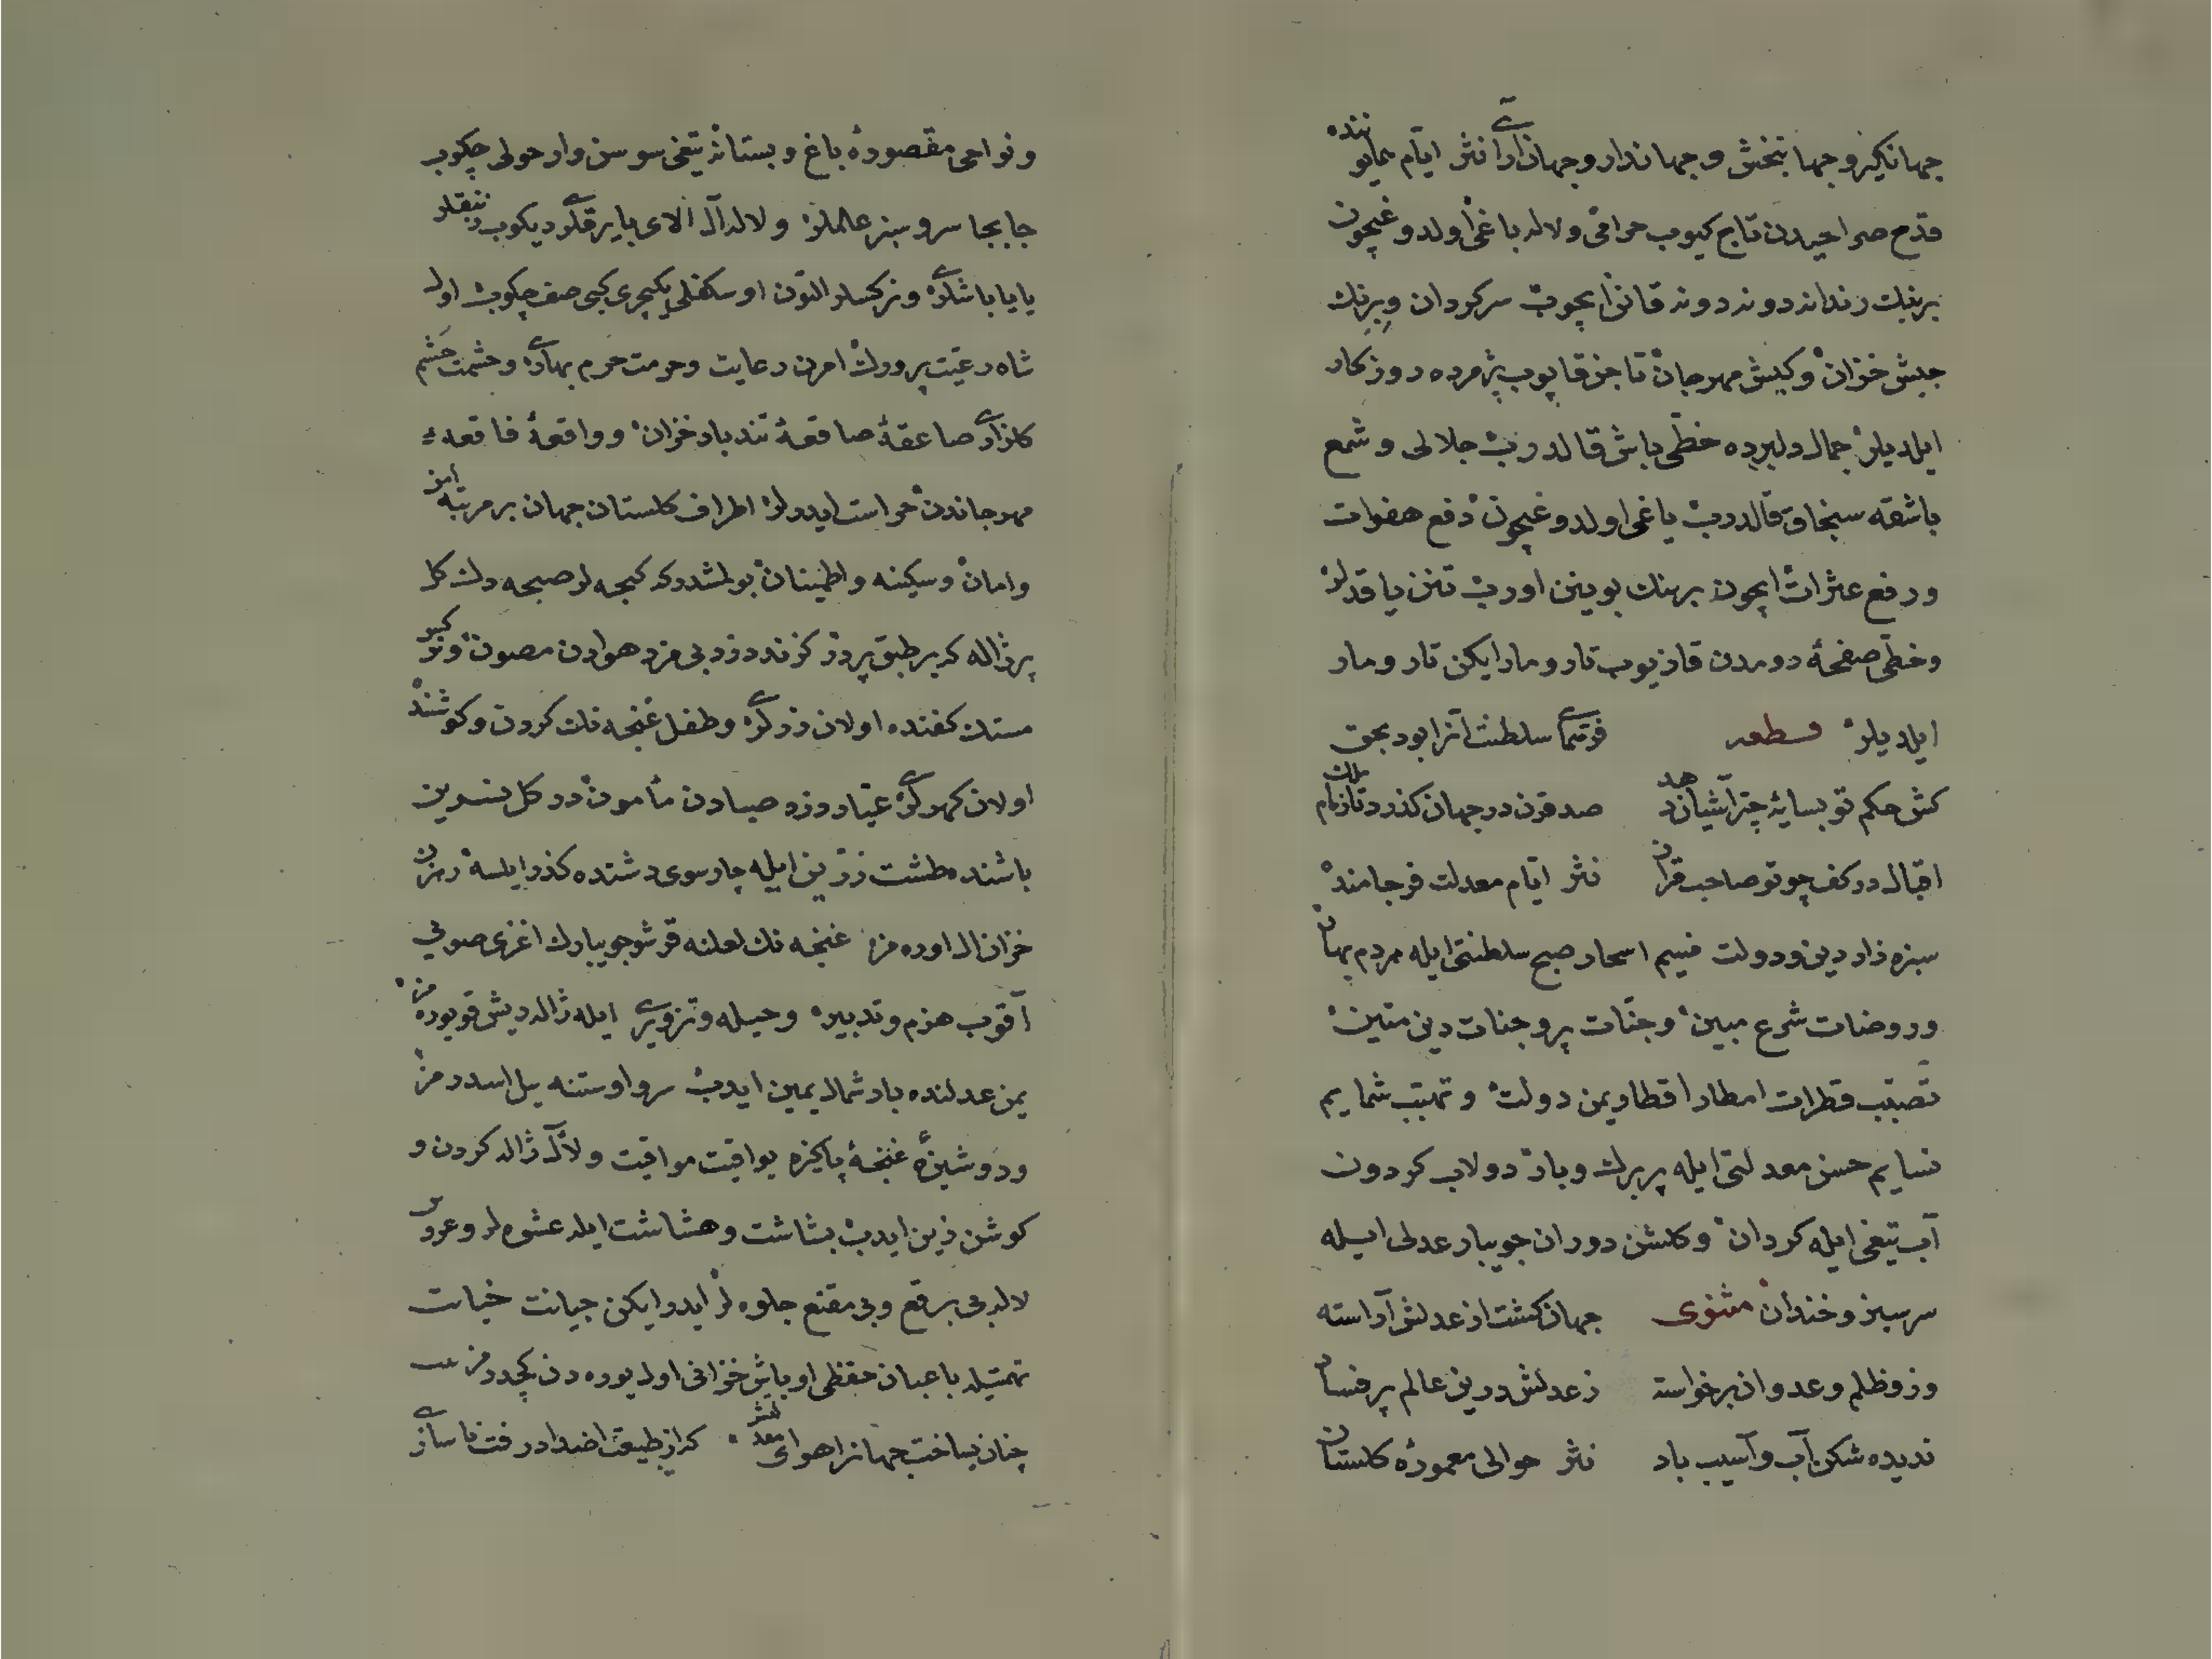 جهانكير و جهانبخش و جهاندار و جهان آراى نثر ايام همايوننده
قدح صراحيدن تاج كيوب حرامى و لاله باغى اولدوغيچون
برنك رندانه دونه دونه قانن ايچوب سركردان و بيرنك
جيش خزان و كيش مهرجان تا جز قاپوب پژمرده روزكار
ايلديلر جمال دلبرده خطى باش قالدروب جلالى و شمع
باشقه سنجاق قالدروب ياغى اولدوغيچون دفع هفوات
و رفع عثرات ايچون برهنك بوينن اوروب تنن ياقدلر
و خطى صفحهٔ رومدن قازيوب تار و مار ايكن تار و مار
ايلديلر قطعه فرمانى سلطنت آنرا بود بحق
كش حكم تو بسايهٔ چتر آشيان دهد صد قرن در جهان كذرد تا زمام ملك
اقبال در كف چو تو صاحب قران نثر ايام معدلت فرجامنده
سبزه زار دين و دولت نسيم اسحار صبح سلطنتى ايله مردم بهاران
و روضات شرع مبين و جنات پر وجنات دين متين
تصبب قطرات امطار اقطار يمن دولت و تهبب شمايم
نسايم حسن معدلتى ايله پر برك و بار دولاب كردون
آب تيغى ايله كردان و كلشن دوران جويبار عدلى ايله
سرسبز و خندان مثنوى جهان كشت از عدلش آراسته
وزو ظلم و عدوان برخواسته ز عدلش درين عالم پر فساد
نديده شكن آب و آسيب باد نثر حوالى معمورهٔ كلستان
و نواحى مقصورهٔ باغ و بستانه تيغى سوسن وار حولى چكوب
جابجا سرو سبز علملر و لاله آل آلاى بايرقلر ديكوب بنفشه لر
يايا باشلرى و نركسلر التون اوسكفلى يكيچرى كبى صف چكوب اول
شاه رعيت پرورك امرن رعايت و حرمت حرم بهارى و حشمت حشم
كلزارى صاعقهٔ صاقعهٔ تندباد خزان و واقعهٔ فاقعهٔ
مهرجاندن حراست ايدرلر اطراف كلستان جهان بر مرتبه امن
و امان و سكينه و اطمينان بولمشدر كه كيجه لر صبحه دك كل
پر ژاله كه بر طبق پر در كزند دزد بى مزد هوادن مصون و نركس
مستك كفنده اولان زرلرى و طفل غنجه نك كردن و كوشنده
اولان كهرلرى عيار دزد صبادن مأمون در كل نسرين
باشنده طشت زرين ايله چار سوى دشتده كذر ايلسه رهزن
خزان ال اورهمز غنجه نك لعلنه قرشو جويبارك اغزى صويى
آقوب هزم و تدبير و حيله و تزويرى ايله ژاله ديش قويورهمز
يمن عدلنده باد شمال يمين ايدب سرو اوستنه يل اسدرمز
و دوشيزهٔ غنجهٔ پاكيزه يواقيت مواقيت و لآل ژاله كردن و
كوشن زين ايدب بشاشت و هشاشت ايله عشوه لر و عروس
لاله بى برقع و بى مقنع جلوه لر ايدر ايكن جيانت خيانت
تهمتيله باغبان حفظى اوباش خزانى اول يوره دن كچورمز بيت
چنان بساخت جهانرا هواى معدلتش كه از طبيعت اضداد رفت ناسازى